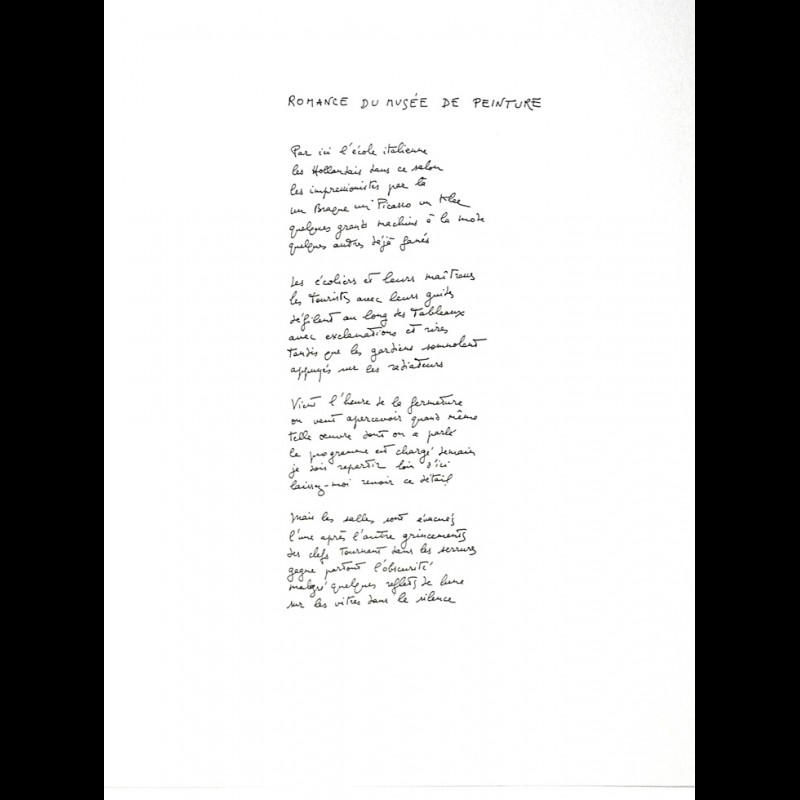 ROMANCE DU MUSÉE DE PEINTURE
Par ici l'école italienne
les Hollandais dans ce salon
les impressionnistes par là
un Braque un Picasso un Klee
quelques grands machins à la mode
quelques autres déjà fanés
Les écoliers et leurs maîtresses
les touristes avec leurs guides
défilent au long des tableaux
avec exclamations et rires
tandis que les gardiens somnolent
appuyés sur les radiateurs
Vient l'heure de la fermeture
on veut apercevoir quand même
telle œuvre dont on a parlé
le programme est chargé demain
je dois repartir loin d'ici
laissez-moi revoir ce détail
Mais les salles sont évacuées
l'une après l'autre grincements
des clefs tournant dans les serrures
gagne partout l'obscurité
malgré quelques reflets de lune
sur les vitres dans le silence